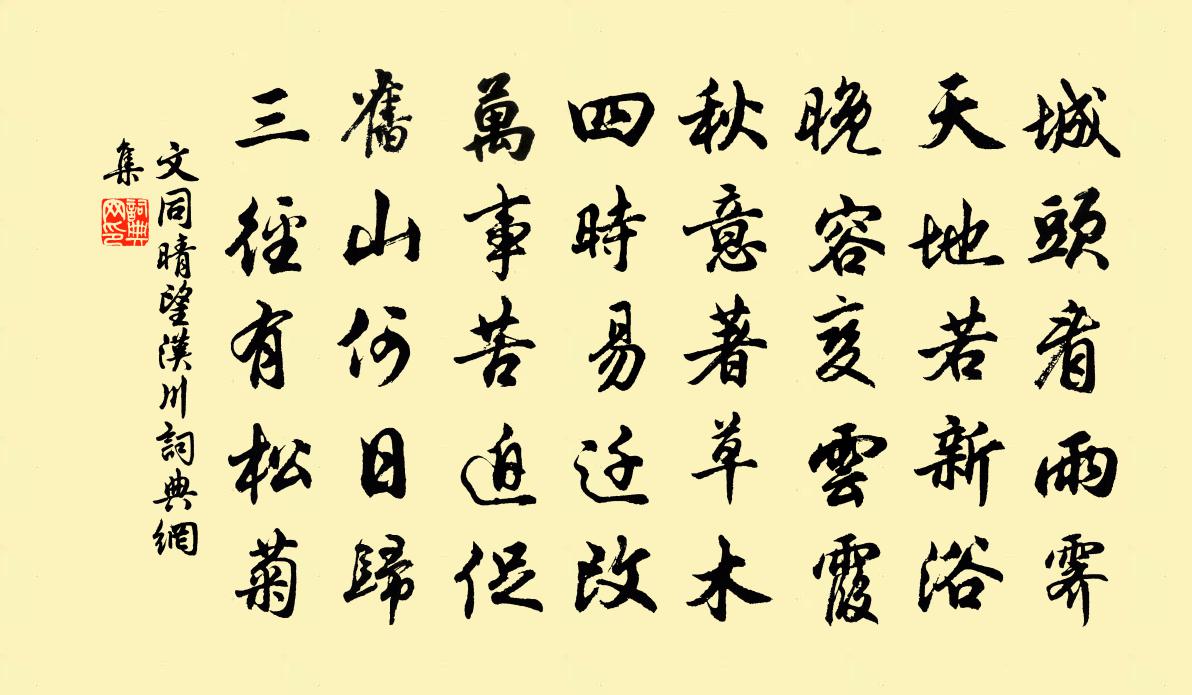 城頭看雨霽
天地若新浴
晚容变雲霞
秋意著草木
四時易迁改
萬事苦迫促
舊山何日歸
三徑有松菊
文同晴望漢川詞典網
集
詞典
网印